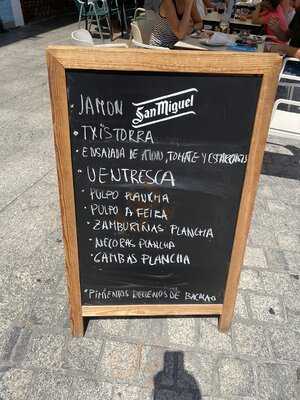 · JAMON
San Miguel
· TXISTORRA
· ENSALADA DE TOMATE Y
· VENTRESCA
· PULPO PLANCHA
· PULPO A FEIRA
· ZAMBURIÑAS PLANCHA
· NECORAS PLANCHA
· GAMBAS PLANCHA
· PIMIENTOS RELLENOS DE BACALAO